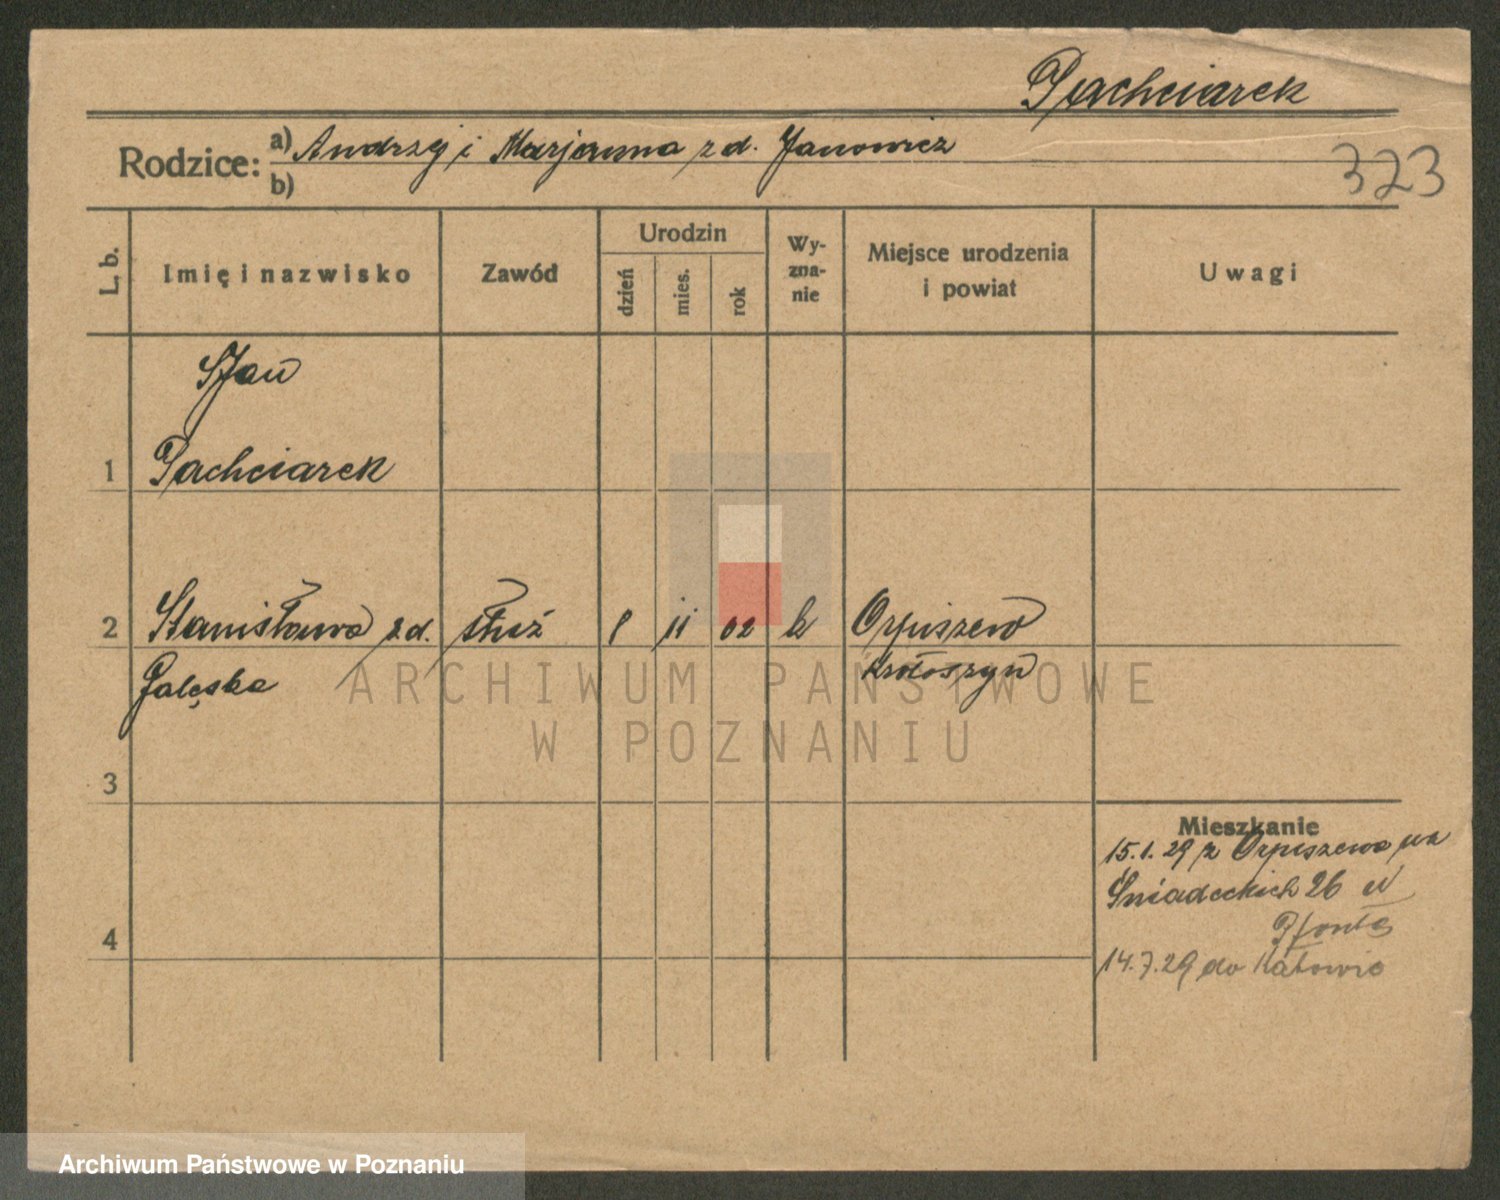 Pachciarek
Rodzice: a) Andrzej i Marjanna z d. Janowicz
b)
323
L. b.
Imię i nazwisko
Zawód
Urodzin
dzień
mies.
rok
Wy-
zna-
nie
Miejsce urodzenia
i powiat
Uwagi
Jan
1 Pachciarek
2 Stanisława z d. służ 8 11 02 k Orpiszew
Gałęska Krotoszyn
ARCHIWUM PAŃSTWOWE
W POZNANIU
3
Mieszkanie
15.1.29 z Orpiszewa na
Śniadeckich 26 u
4
14.7.29 do Katowic
Archiwum Państwowe w Poznaniu